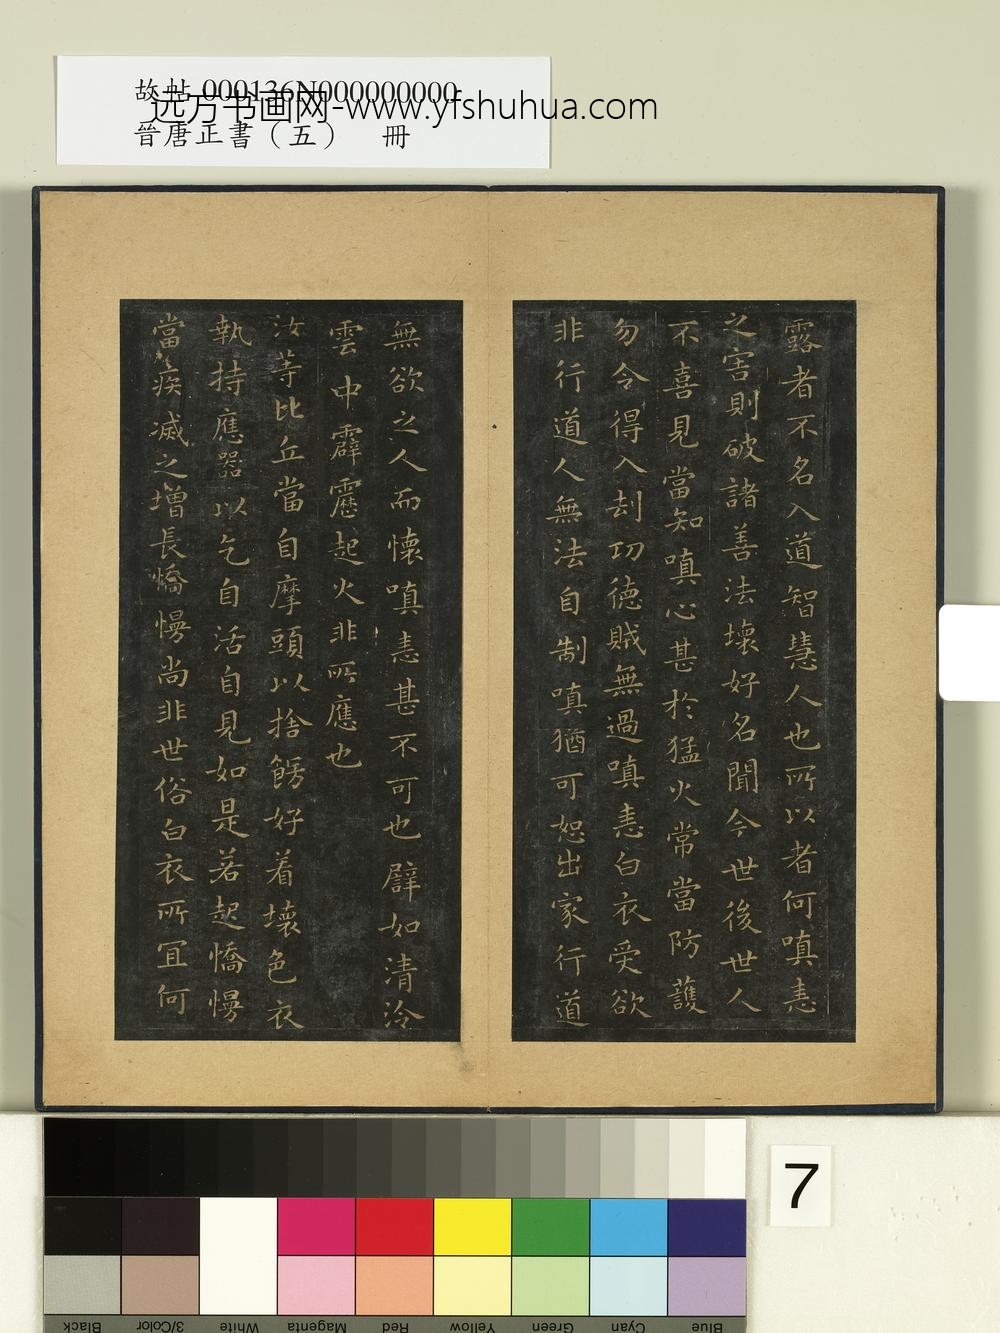 故帖 000136N000000000
远方书画网-www.yfshuhua.com
晉唐正書（五） 冊
露者不名入道智慧人也所以者何嗔恚
之害則破諸善法壞好名聞今世後世人
不喜見當知嗔心甚於猛火常當防護
勿令得入刦功徳賊無過嗔恚白衣受欲
非行道人無法自制嗔猶可恕出家行道
無欲之人而懐嗔恚甚不可也譬如清泠
雲中霹靂起火非所應也
汝等比丘當自摩頭以捨餝好着壊色衣
執持應器以乞自活自見如是若起憍慢
當疾滅之増長憍慢尚非世俗白衣所冝何
7
Black
3/Color
White
Magenta
Red
Yellow
Green
Cyan
Blue